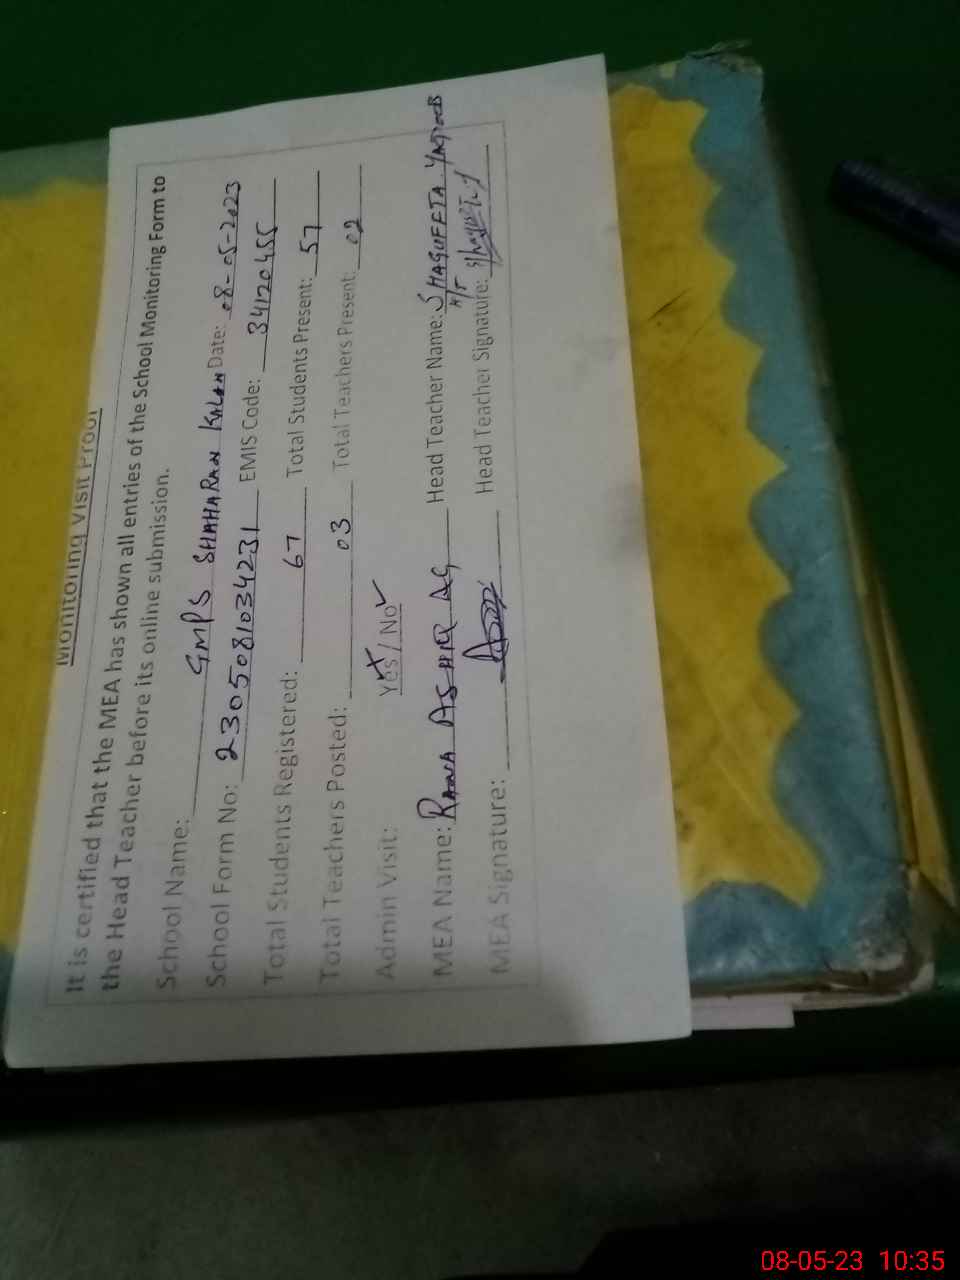 Monitoring Visit Proof
It is certified that the MEA has shown all entries of the School Monitoring Form to
the Head Teacher before its online submission.
School Name: GMPS SHAHARAN KALAN Date: 08-05-2023
School Form No: 2305081034231 EMIS Code: 34120455
Total Students Registered: 67 Total Students Present: 57
Total Teachers Posted: 03 Total Teachers Present: 02
Admin Visit: Yes / No ✓
MEA Name: RANA ASHIQ AG Head Teacher Name: SHAGUFTA YAQOOB
H/T
MEA Signature: Head Teacher Signature:
08-05-23 10:35